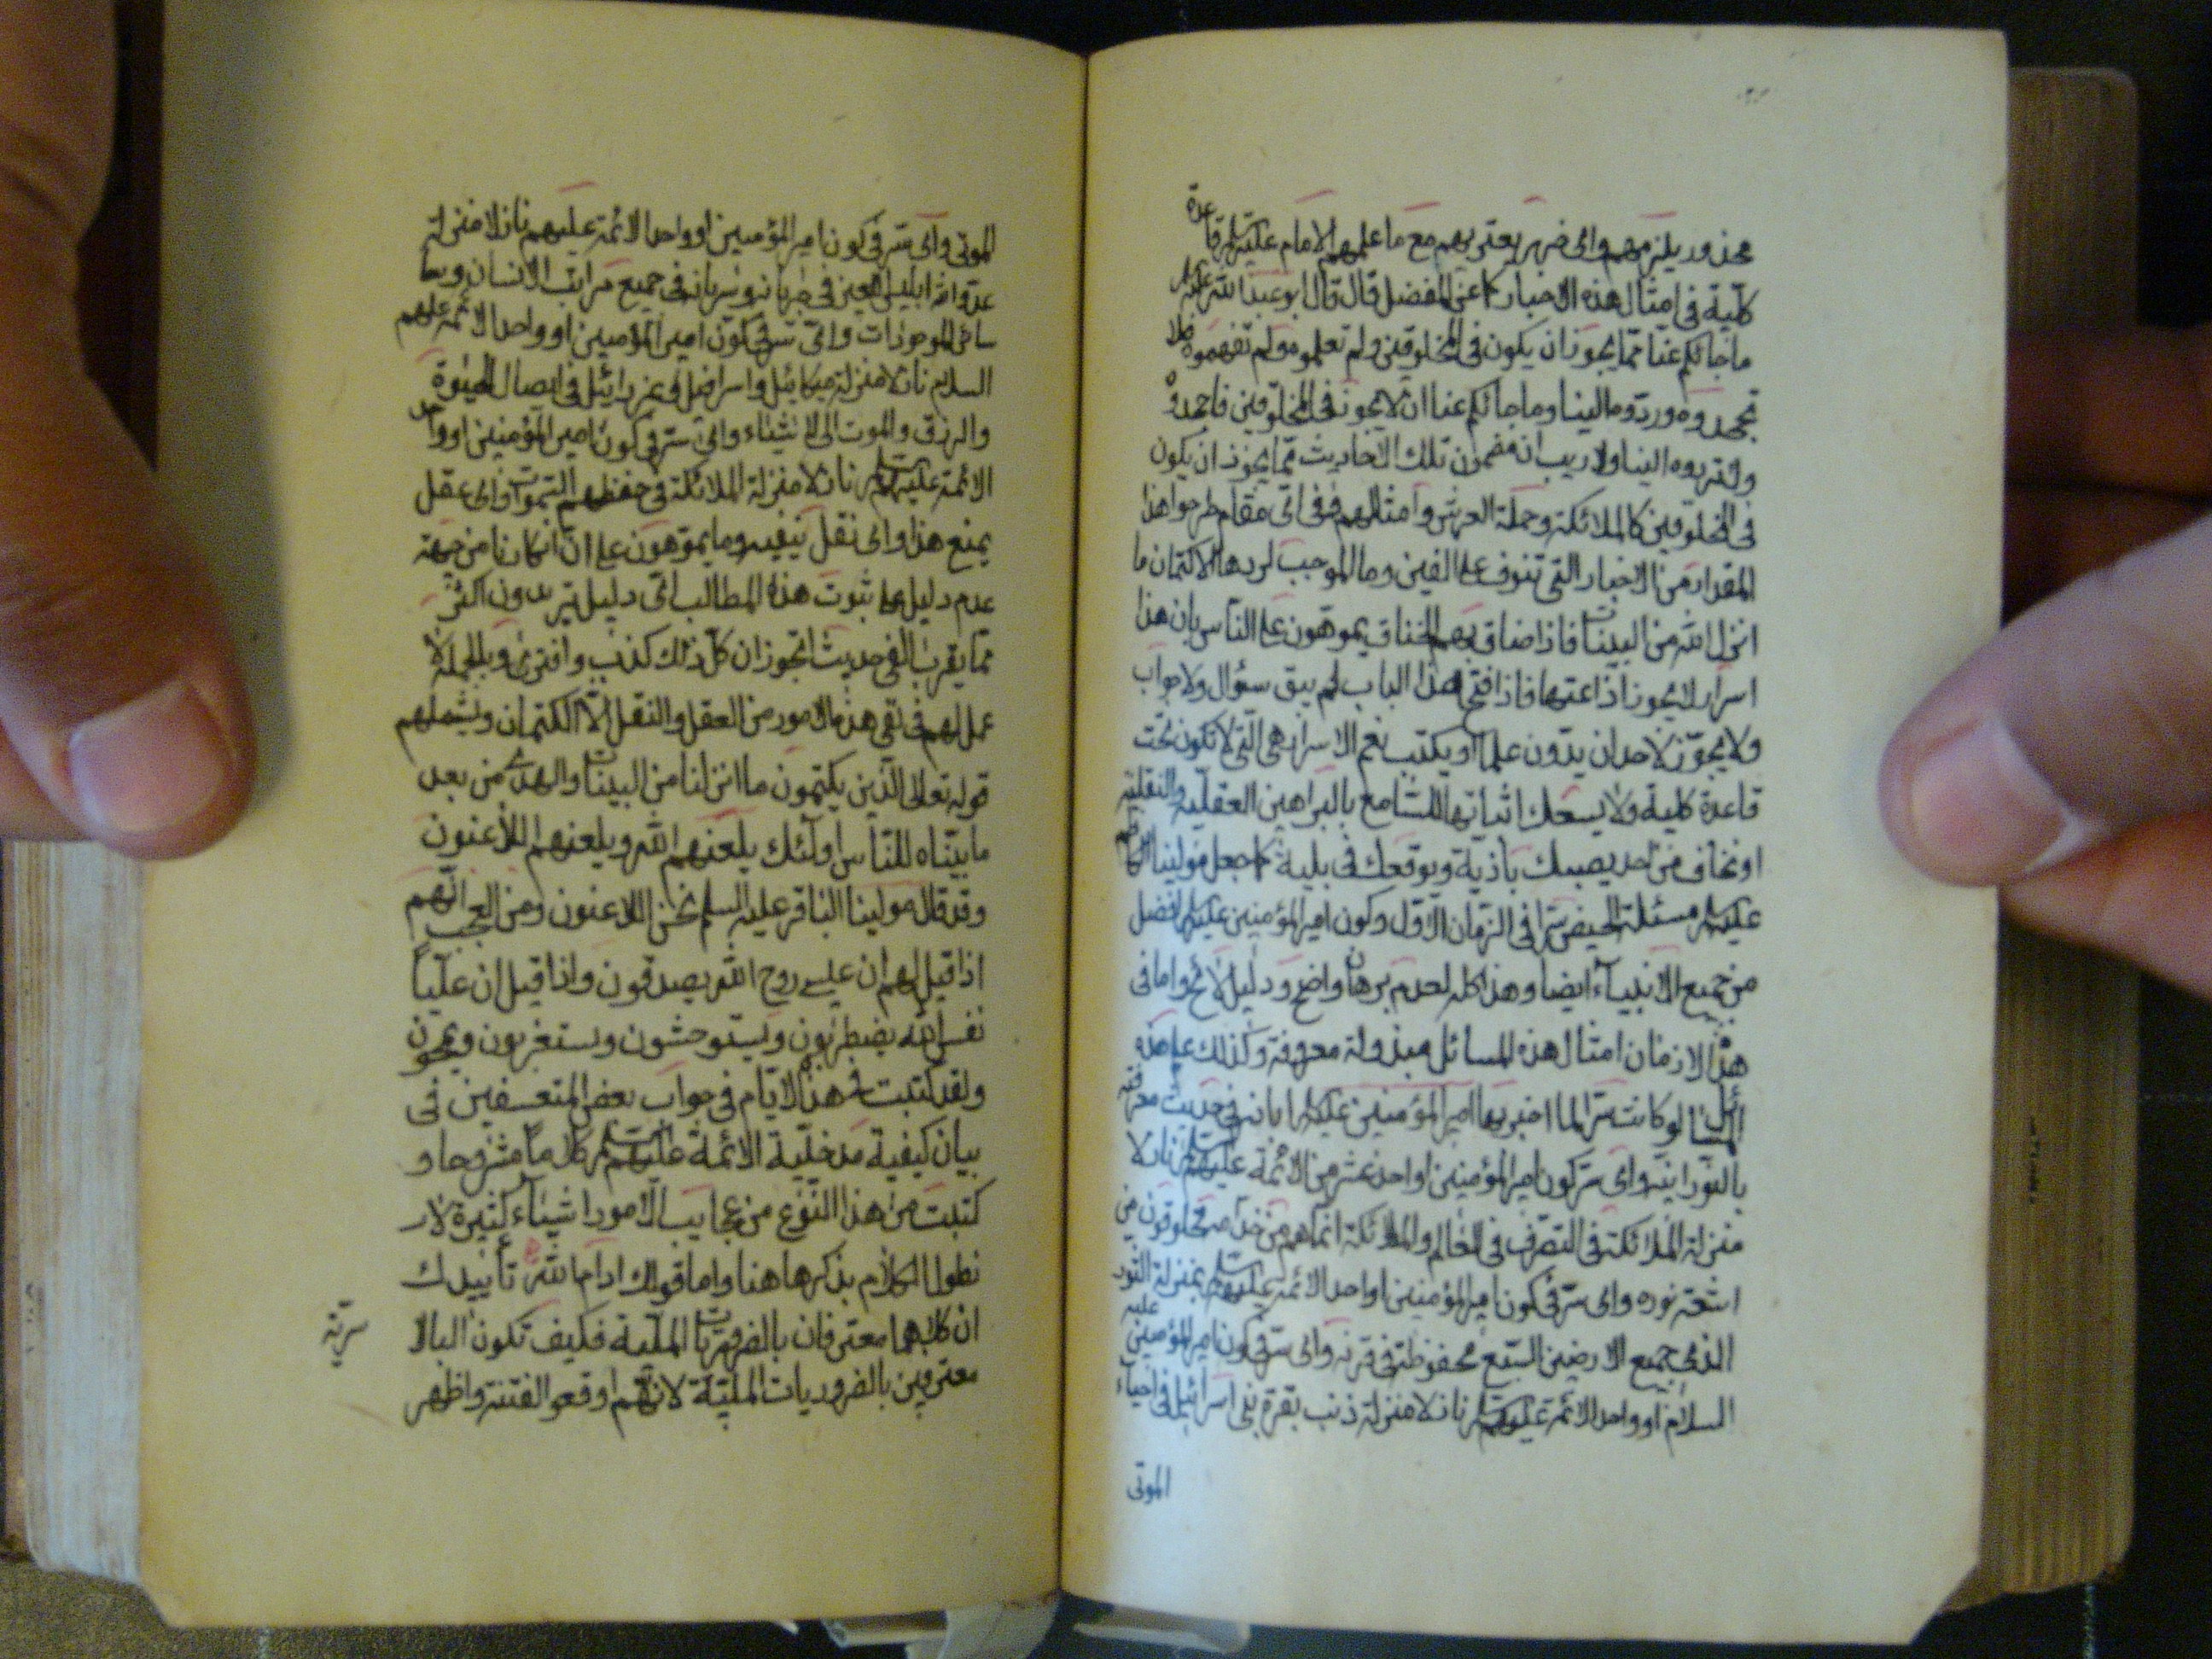 محذور يلزمهم واى ضرر يعتريهم مع ما علمهم الامام عليه السلم قاعدة
كلية فى امثال هذه الاخبار كما عن المفضل قال قال ابو عبد الله عليه السلم
ما جائكم عنا مما يجوز ان يكون فى المخلوقين ولم تعلموه ولم تفهموه فلا
تجحدوه وردوه الينا وما جائكم عنا ان لا يجوز فى المخلوقين فاجحدوه
ولا تردوه الينا ولا ريب ان مضمون تلك الاحاديث مما يجوز ان يكون
فى المخلوقين كالملائكة وحملة العرش وامثالهم ففى اى مقام طرحوا هذا
المقدار من الاخبار التى تنوف على الفين وما الموجب لردها الا كتمان ما
انزل الله من البينات فاذا ضاق بهم الخناق يموهون على الناس بان هذا
اسرار لا يجوز اذاعتها فاذا فتح هذا الباب لم يبق سؤال ولا جواب
ولا يجوز لاحد ان يدون علما او يكتب نعم الاسرار هى التى لا تكون تحت
قاعدة كلية ولا يسعك اثباتها للسامع بالبراهين العقلية والنقلية
او تخاف من احد يصيبك باذية ويوقعك فى بلية كما جعل مولينا الكاظم
عليه السلم مسئلة الحيض سرا فى الزمان الاول وكون امير المؤمنين عليه السلم افضل
من جميع الانبياء ايضا وهذا كله لعدم برهان واضح ودليل لائح واما فى
هذه الازمان امثال هذه المسائل مبذولة معروفة وكذلك على هذه
المسائل لو كانت سرا لما اخبر بها امير المؤمنين عليه السلم اباذر فى حديث معرفته
بالنورانية واى سر كون امير المؤمنين او احد عشر من الائمة عليهم السلم نازلا
منزلة الملائكة فى التصرف فى العالم والملائكة انما هم من خدامه مخلوقون من
اشعة نوره واى سر فى كون امير المؤمنين او احد الائمة عليهم السلم بمنزلة الثور
الذى جميع الارضين السبع محفوظة فى قرنه واى سر فى كون امير المؤمنين عليه
السلام او واحد الائمة عليهم السلم نازلا منزلة ذنب بقرة بنى اسرائيل فى احياء
الموتى
الموتى واى سر فى كون امير المؤمنين او واحد الائمة عليهم نازلا منزلة
عدو الله ابليس اللعين فى جريانه وسريانه فى جميع مراتب الانسان و
سائر الموجودات واى سر فى كون امير المؤمنين او واحد الائمة عليهم
السلام نازلا منزلة ميكائيل واسرافيل وعزرائيل فى ايصال الحيوة
والرزق والموت الى الاشياء واى سر فى كون امير المؤمنين او واحد
الائمة عليهم السلم نازلا منزلة الملائكة فى حفظهم السموات واى عقل
يمنع هذا واى نقل ينفيه وما يموهون على ان انكارنا من جهة
عدم دليل على ثبوت هذه المطالب اى دليل تريدون اكثر
مما يقرب الفى حديث اتجوز ان كل ذلك كذب وافترى وبالجملة لا
عمل لهم فى نفى هذه الامور من العقل والنقل الا الكتمان ويشملهم
قوله تعالى الذين يكتمون ما انزلنا من البينات والهدى من بعد
ما بيناه للناس اولئك يلعنهم الله ويلعنهم اللاعنون
وقد قال مولينا الباقر عليه السلم نحن اللاعنون ومن العجب انهم
اذا قيل لهم ان عيسى روح الله يصدقون واذا قيل ان عليا
نفس الله يضطربون ويستوحشون ويستغربون ويمجون
ولقد كتبت فى هذه الايام فى جواب بعض المتعسفين فى
بيان كيفية مدخلية الائمة عليهم السلم كلاما مشروحا و
كتبت من هذا النوع من عجايب الامور اشياء كثيرة لا
نطول الكلام بذكرها هنا واما قولك ادام الله تأييدك
ان كلاهما معترفان بالضروريات الملية فكيف تكون البالا
سرية
معترفين بالضروريات الملية لانهم اوقعو الفتنة واظهر